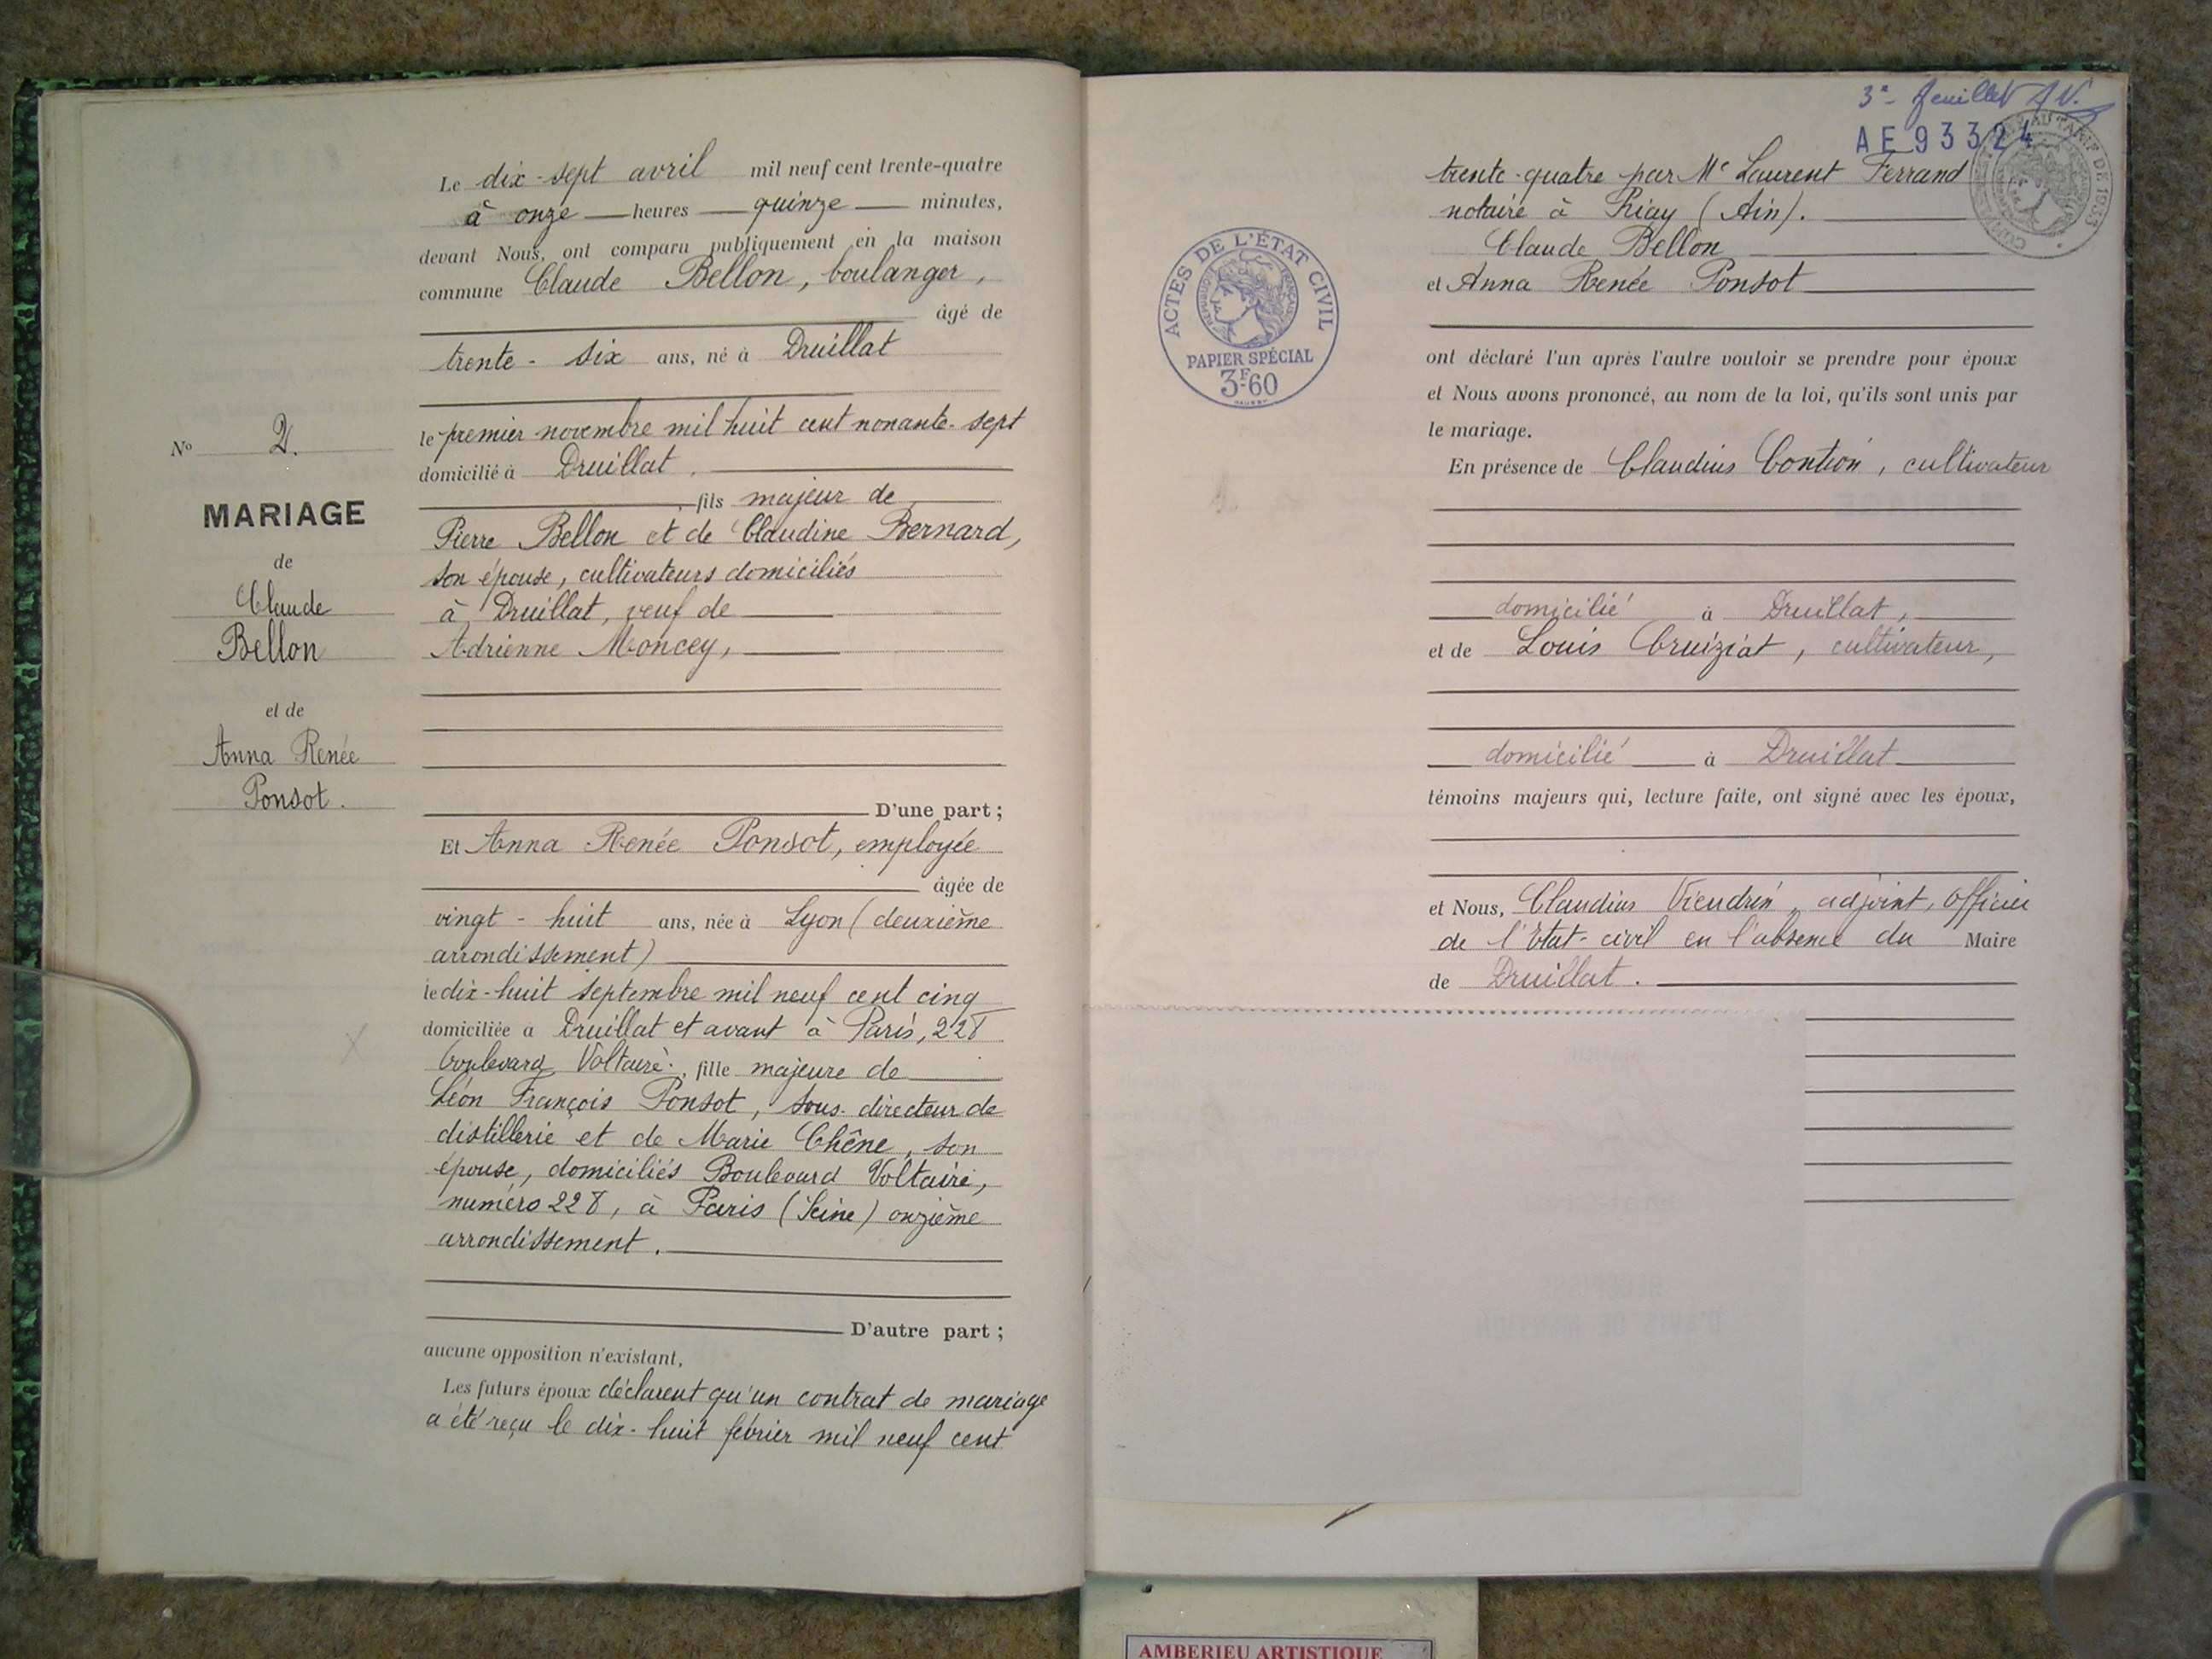 Le dix-sept avril mil neuf cent trente-quatre
à onze heures quinze minutes,
devant Nous, ont comparu publiquement en la maison
commune Claude Bellon, boulanger,
âgé de
trente-six ans, né à Druillat
le premier novembre mil huit cent nonante-sept
domicilié à Druillat.
, fils majeur de
Pierre Bellon et de Claudine Bernard,
son épouse, cultivateurs domiciliés
à Druillat, veuf de
Adrienne Moncey,
D'une part ;
Et Anna Renée Ponsot, employée
âgée de
vingt-huit ans, née à Lyon (deuxième
arrondissement)
le dix-huit septembre mil neuf cent cinq
domiciliée à Druillat et avant à Paris, 228
boulevard Voltaire, fille majeure de
Léon François Ponsot, sous-directeur de
distillerie et de Marie Chêne, son
épouse, domiciliés Boulevard Voltaire,
numéro 228, à Paris (Seine) onzième
arrondissement.
D'autre part ;
aucune opposition n'existant,
Les futurs époux déclarent qu'un contrat de mariage
a été reçu le dix-huit février mil neuf cent
No 2.
MARIAGE
de
Claude
Bellon
et de
Anna Renée
Ponsot.
3e feuillet
AE 93324
trente-quatre par Me Laurent Ferrand
notaire à Priay (Ain).
Claude Bellon
et Anna Renée Ponsot
ont déclaré l'un après l'autre vouloir se prendre pour époux
et Nous avons prononcé, au nom de la loi, qu'ils sont unis par
le mariage.
En présence de Claudius Contion, cultivateur
domicilié à Druillat,
et de Louis Cruiziat, cultivateur,
domicilié à Druillat
témoins majeurs qui, lecture faite, ont signé avec les époux,
et Nous, Claudius Viendrin, adjoint, officier
de l'Etat-civil en l'absence du Maire
de Druillat.
ACTES DE L'ÉTAT CIVIL
RÉPUBLIQUE FRANÇAISE
PAPIER SPÉCIAL
3F60
AMBERIEU ARTISTIQUE